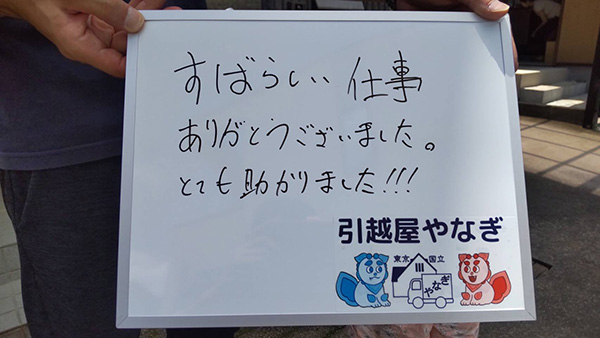 すばらしい仕事
ありがとうございました。
とても助かりました!!!
引越屋やなぎ
東京 国立
やなぎ